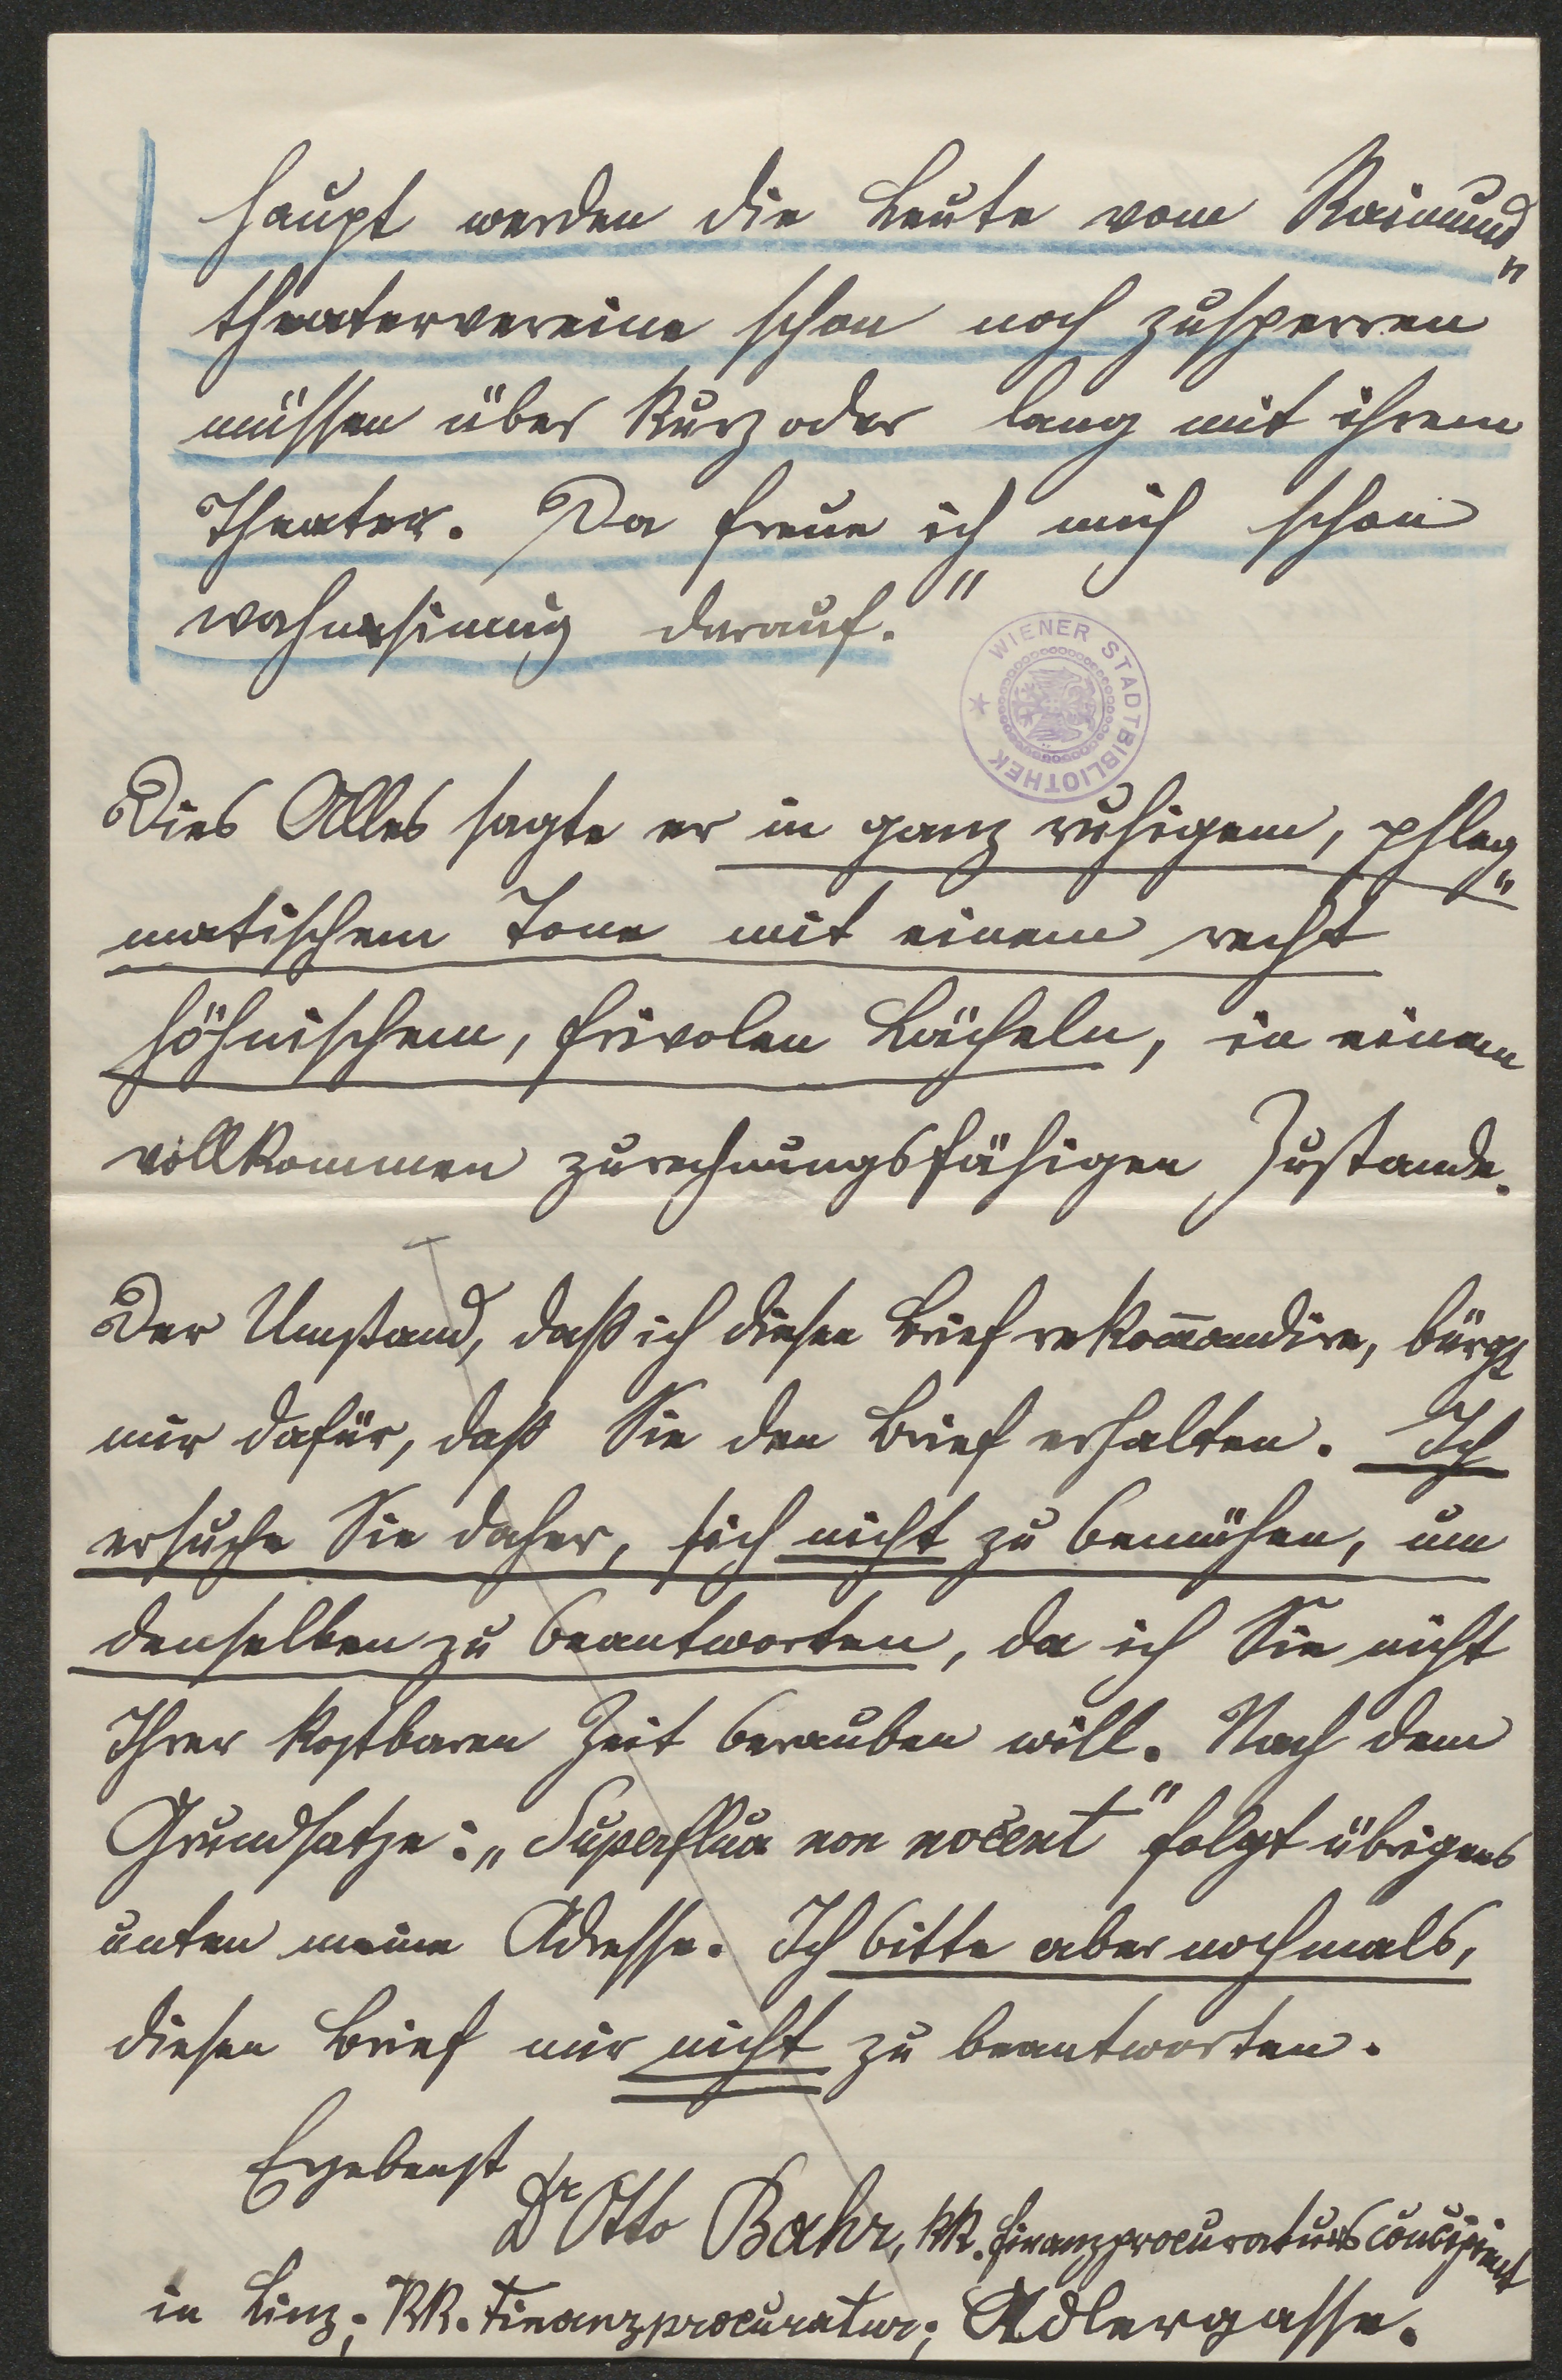 haupt werden die Leute vom Raimund„
theatervereine schon noch zusperren
müssen über Kurz oder lang mit ihrem
Theater. Da freue ich mich schon
wahnsinnig darauf."
WIENER STADTBIBLIOTHEK
Dies Alles sagte er in ganz ruhigem, phleg„
matischem Tone mit einem recht
höhnischem, frivolen Lächeln, in einem
vollkommen zurechnungsfähigen Zustande.
Der Umstand, daß ich diesen Brief rekom̄andire, bürgt
mir dafür, daß Sie den Brief erhalten. Ich
ersuche Sie daher, sich nicht zu bemühen, um
denselben zu beantworten, da ich Sie nicht
Ihrer kostbaren Zeit berauben will. Nach dem
Grundsatze: „Superflua non nocent" folgt übrigens
unten meine Adresse. Ich bitte aber nochmals,
diesen Brief mir nicht zu beantworten.
Ergebenst
Dr Otto Bahr, kk. Finanzprocuraturs concipient
in Linz; kk. Finanzprocuratur; Adlergasse.